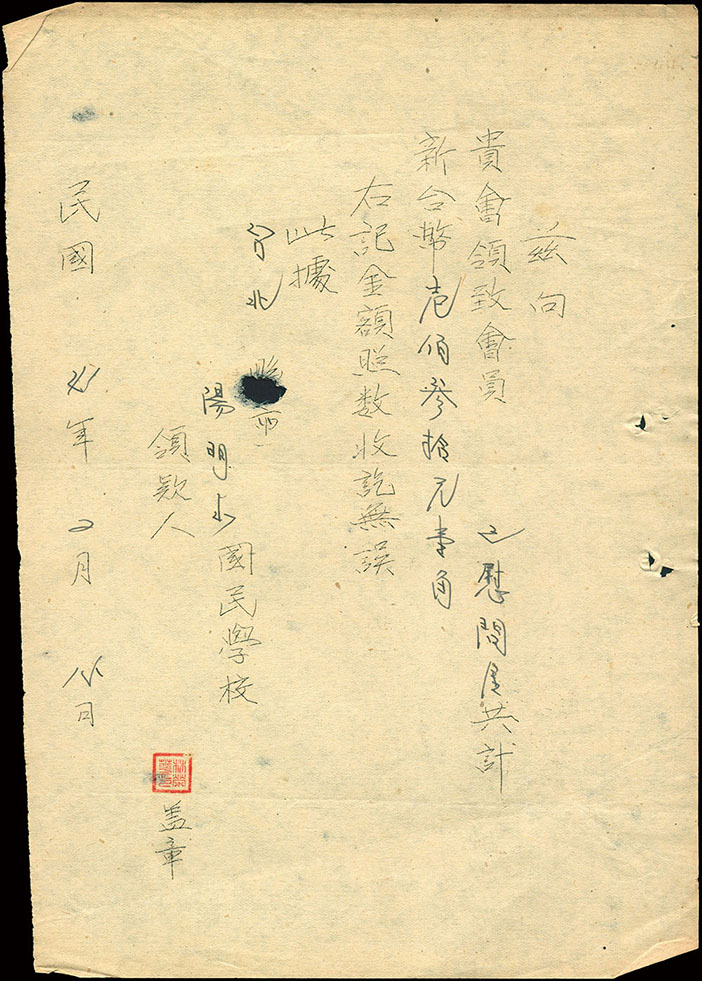 茲向
貴會領致會員 之慰問金共計
新台幣壱佰參拾元壱角
右記金額照数收訖無誤
此據
台北 縣市
陽明山國民學校
領款人 盖章
民國 年 2月 日